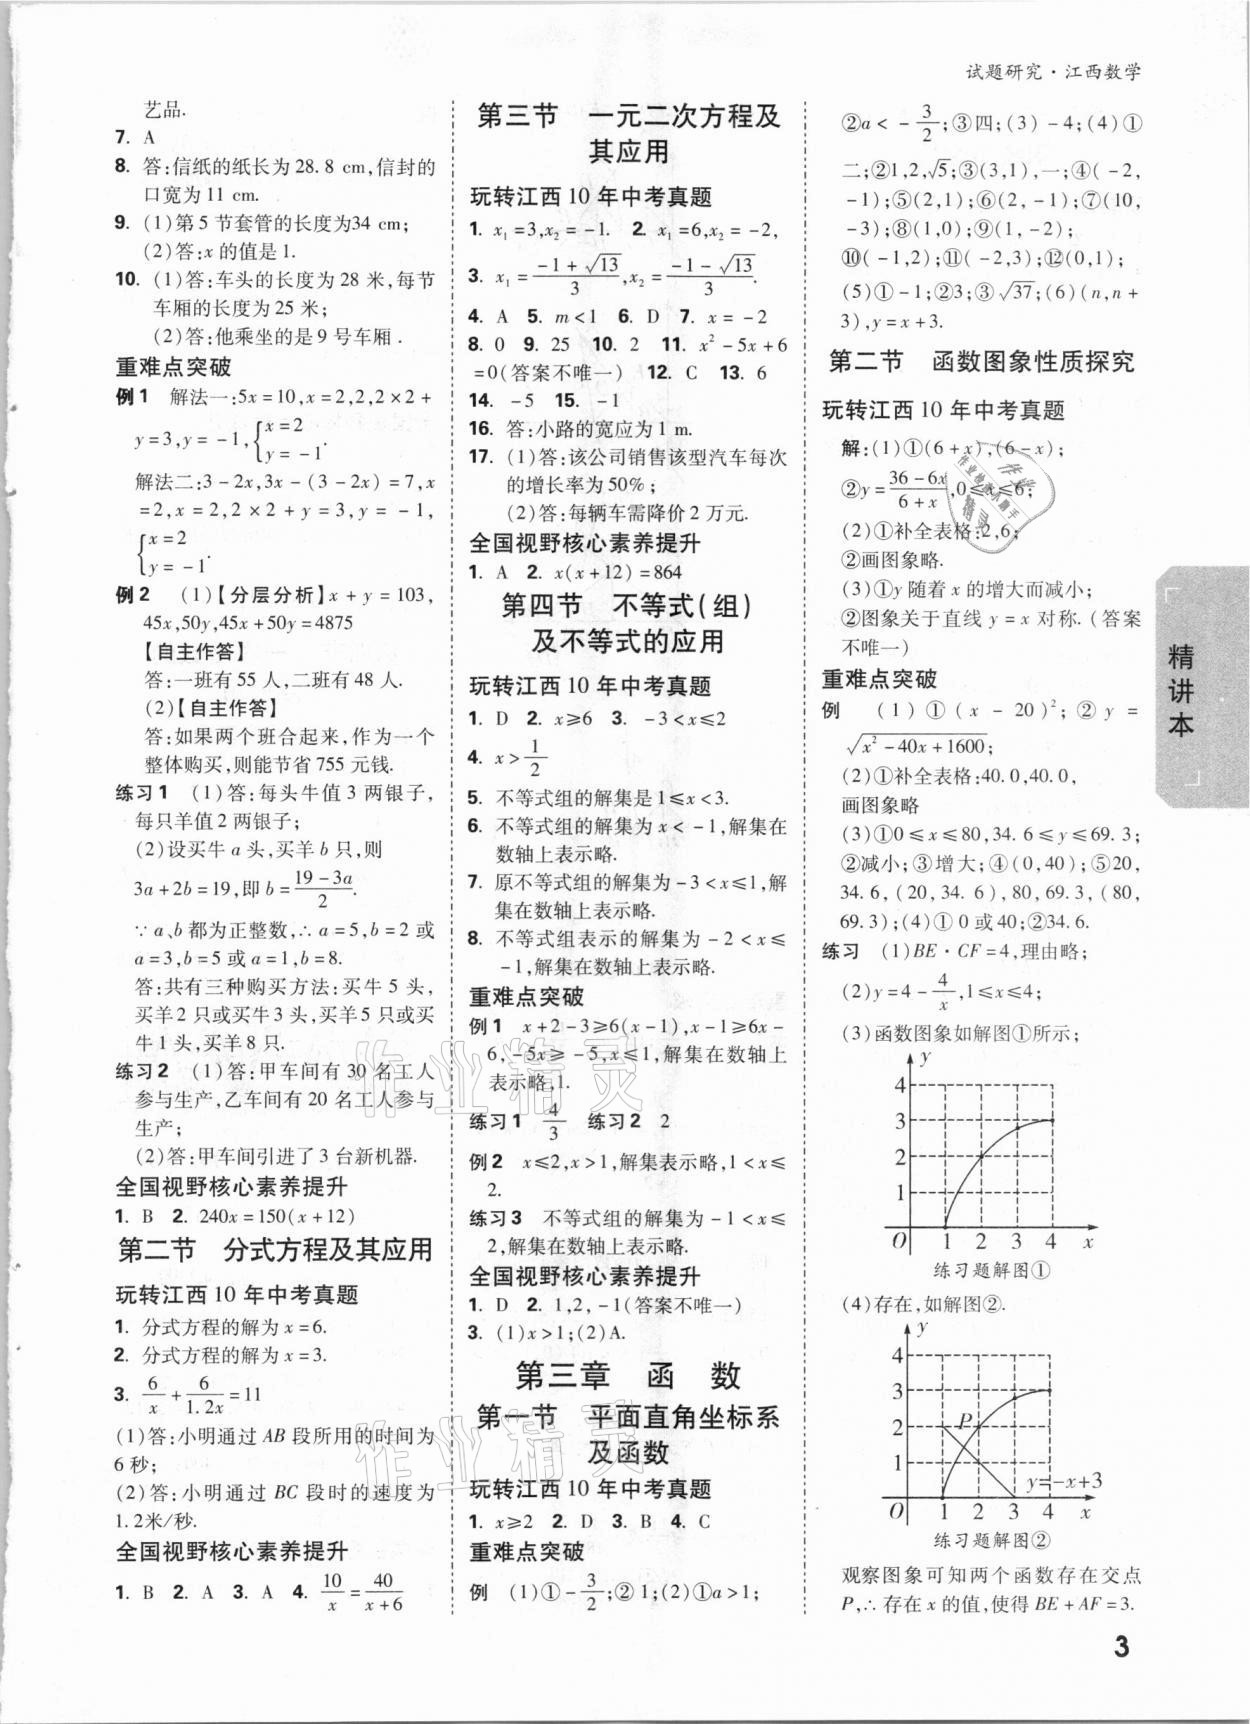 试题研究·江西数学
艺品.
7. A
8. 答:信纸的纸长为 28.8 cm,信封的
口宽为 11 cm.
9. (1)第 5 节套管的长度为34 cm;
(2)答:x 的值是 1.
10. (1)答:车头的长度为 28 米,每节
车厢的长度为 25 米;
(2)答:他乘坐的是 9 号车厢.
重难点突破
例1 解法一:5x=10,x=2,2,2×2+
y=3,y=-1,{x=2 y=-1.
解法二:3-2x,3x-(3-2x)=7,x
=2,x=2,2×2+y=3,y=-1,
{x=2 y=-1.
例2 (1)【分层分析】x+y=103,
45x,50y,45x+50y=4875
【自主作答】
答:一班有 55 人,二班有 48 人.
(2)【自主作答】
答:如果两个班合起来,作为一个
整体购买,则能节省 755 元钱.
练习1 (1)答:每头牛值 3 两银子,
每只羊值 2 两银子;
(2)设买牛 a 头,买羊 b 只,则
3a+2b=19,即 b=(19-3a)/2.
∵a、b 都为正整数,∴a=5,b=2 或
a=3,b=5 或 a=1,b=8.
答:共有三种购买方法:买牛 5 头,
买羊2 只或买牛 3 头,买羊5 只或买
牛 1 头,买羊 8 只.
练习2 (1)答:甲车间有 30 名工人
参与生产,乙车间有 20 名工人参与
生产;
(2)答:甲车间引进了 3 台新机器.
全国视野核心素养提升
1. B 2. 240x=150(x+12)
第二节 分式方程及其应用
玩转江西 10 年中考真题
1. 分式方程的解为 x=6.
2. 分式方程的解为 x=3.
3. 6/x+6/1.2x=11
(1)答:小明通过 AB 段所用的时间为
6 秒;
(2)答:小明通过 BC 段时的速度为
1.2米/秒.
全国视野核心素养提升
1. B 2. A 3. A 4. 10/x=40/(x+6)
第三节 一元二次方程及
其应用
玩转江西 10 年中考真题
1. x₁=3,x₂=-1. 2. x₁=6,x₂=-2,
3. x₁=(-1+√13)/3,x₂=(-1-√13)/3.
4. A 5. m<1 6. D 7. x=-2
8. 0 9. 25 10. 2 11. x²-5x+6
=0(答案不唯一) 12. C 13. 6
14. -5 15. -1
16. 答:小路的宽应为 1 m.
17. (1)答:该公司销售该型汽车每次
的增长率为 50%;
(2)答:每辆车需降价 2 万元.
全国视野核心素养提升
1. A 2. x(x+12)=864
第四节 不等式(组)
及不等式的应用
玩转江西 10 年中考真题
1. D 2. x≥6 3. -3<x≤2
4. x>1/2
5. 不等式组的解集是 1≤x<3.
6. 不等式组的解集为 x<-1,解集在
数轴上表示略.
7. 原不等式组的解集为-3<x≤1,解
集在数轴上表示略.
8. 不等式组表示的解集为-2<x≤
-1,解集在数轴上表示略.
重难点突破
例1 x+2-3≥6(x-1),x-1≥6x-
6,-5x≥-5,x≤1,解集在数轴上
表示略,1.
练习1 4/3 练习2 2
例2 x≤2,x>1,解集表示略,1<x≤
2.
练习3 不等式组的解集为-1<x≤
2,解集在数轴上表示略.
全国视野核心素养提升
1. D 2. 1,2,-1(答案不唯一)
3. (1)x>1;(2)A.
第三章 函 数
第一节 平面直角坐标系
及函数
玩转江西 10 年中考真题
1. x≥2 2. D 3. B 4. C
重难点突破
例 (1)①-3/2;②1;(2)①a>1;
②a<-3/2;③四;(3)-4;(4)①
二;②1,2,√5;③(3,1),一;④(-2,
-1);⑤(2,1);⑥(2,-1);⑦(10,
-3);⑧(1,0);⑨(1,-2);
⑩(-1,2);⑪(-2,3);⑫(0,1);
(5)①-1;②3;③√37;(6)(n,n+
3),y=x+3.
第二节 函数图象性质探究
玩转江西 10 年中考真题
解:(1)①(6+x),(6-x);
②y=(36-6x)/(6+x),0≤x≤6;
(2)①补全表格:2,6;
②画图象略.
(3)①y 随着 x 的增大而减小;
②图象关于直线 y=x 对称.(答案
不唯一)
重难点突破
例 (1)①(x-20)²;②y=
√(x²-40x+1600);
(2)①补全表格:40.0,40.0,
画图象略
(3)①0≤x≤80,34.6≤y≤69.3;
②减小;③增大;④(0,40);⑤20,
34.6,(20,34.6),80,69.3,(80,
69.3);(4)①0 或 40;②34.6.
练习 (1)BE·CF=4,理由略;
(2)y=4-4/x,1≤x≤4;
(3)函数图象如解图①所示;
y
4
3
2
1
O 1 2 3 4 x
练习题解图①
(4)存在,如解图②.
y
4
3
2
P
1
y=-x+3
O 1 2 3 4 x
练习题解图②
观察图象可知两个函数存在交点
P,∴存在 x 的值,使得 BE+AF=3.
精讲本
3
作业精灵
作业精灵